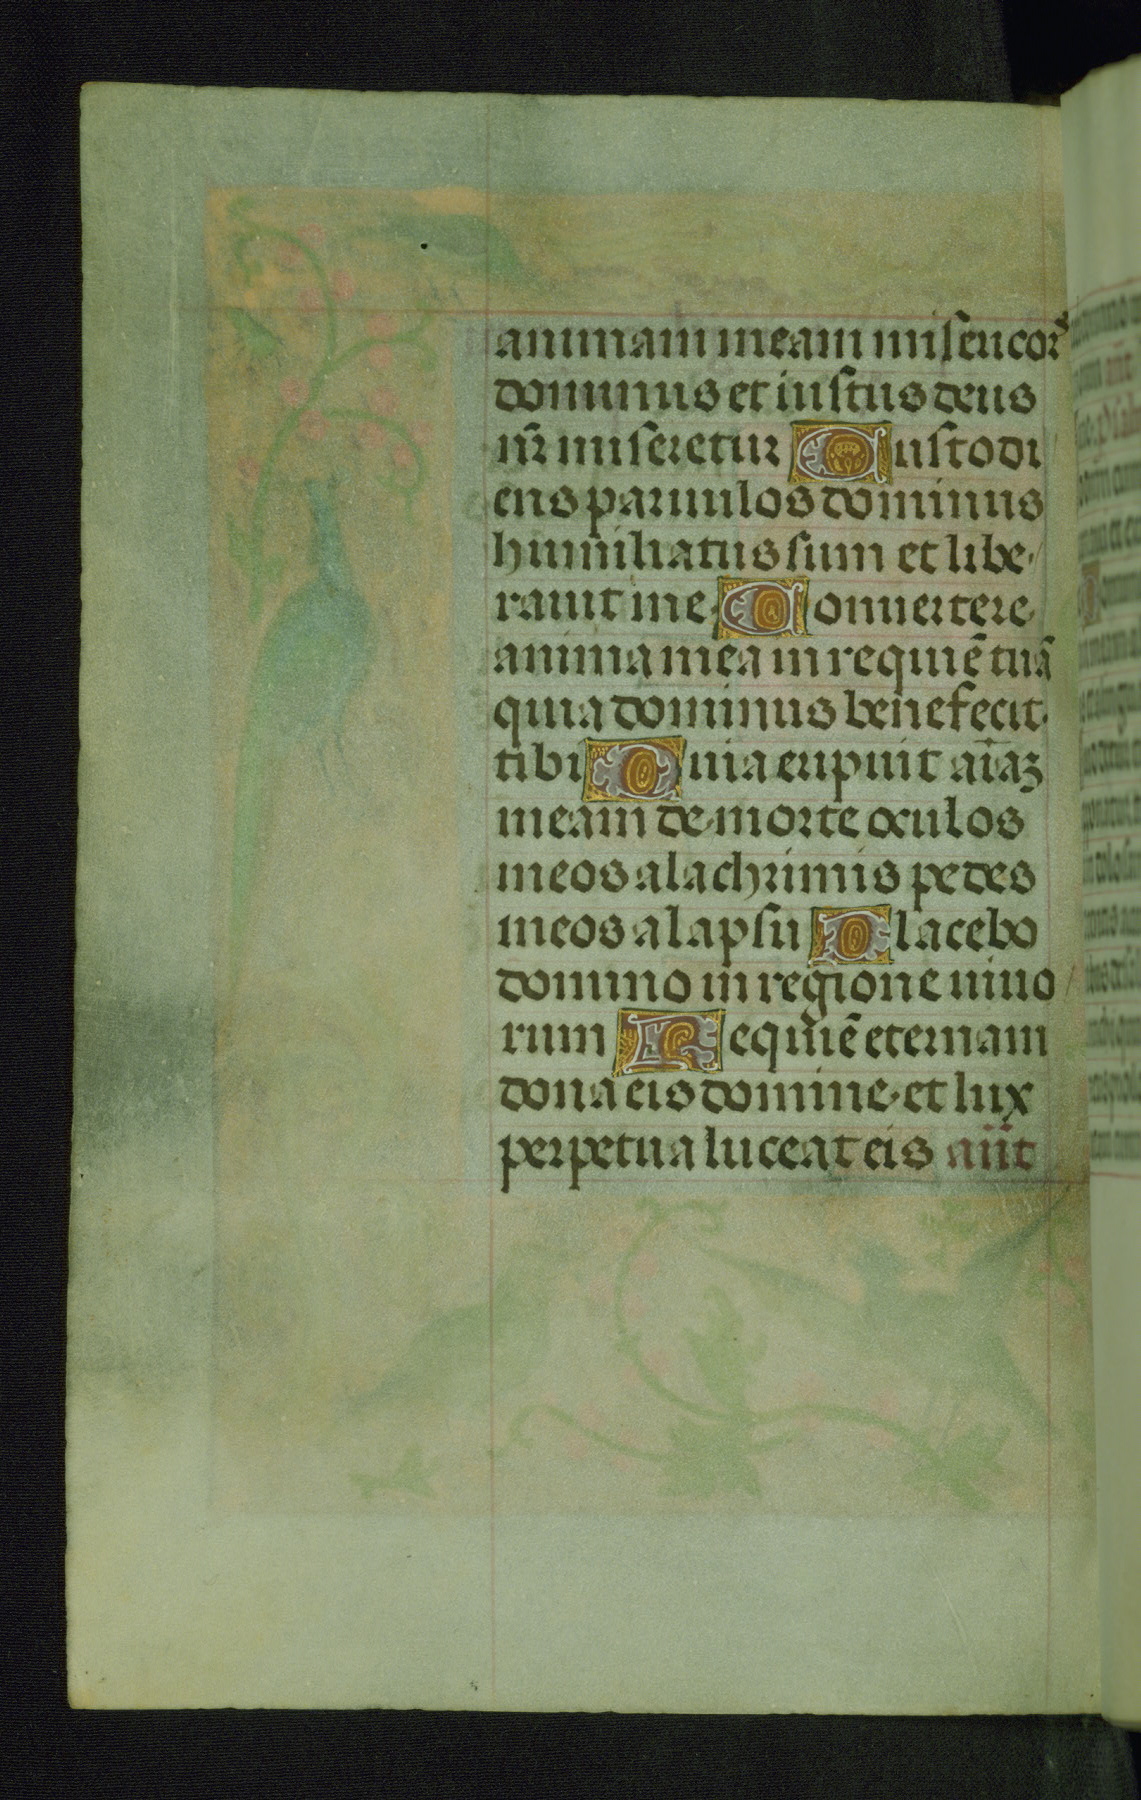 animam meam misericors
dominus et iustus deus
nr̄ miseretur Custodi
ens paruulos dominus
humiliatus sum et libe
rauit me Conuertere
anima mea in requiē tuā
quia dominus benefecit
tibi Quia eripuit aīaʒ
meam de morte oculos
meos a lachrimis pedes
meos a lapsu Placebo
domino in regione uiuo
rum Requiē eternam
dona eis domine et lux
perpetua luceat eis añt